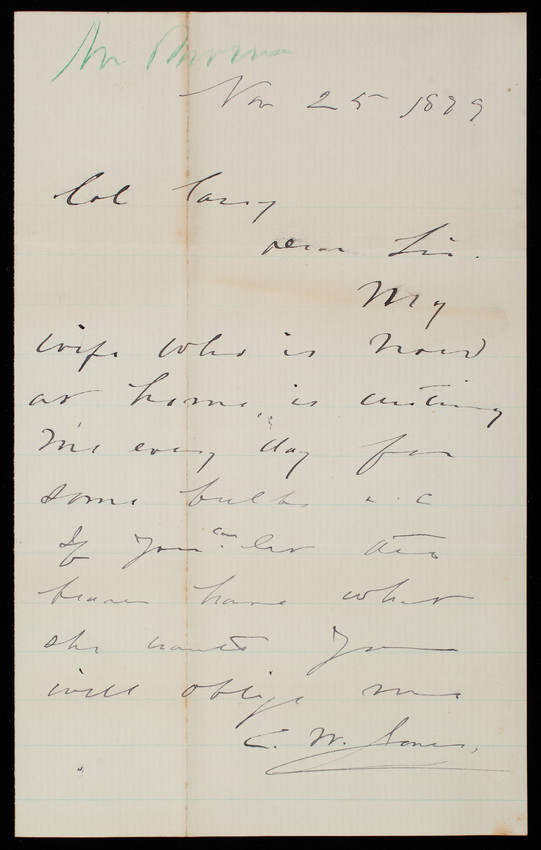 Mr
Nov 25 1879
Col Casey
Dear Sir.
My
wife who is now
at home, is writing
me every day for
some bulbs &c
If you can let the
bearer have what
she wants you
will oblige me
C. W. Jones,